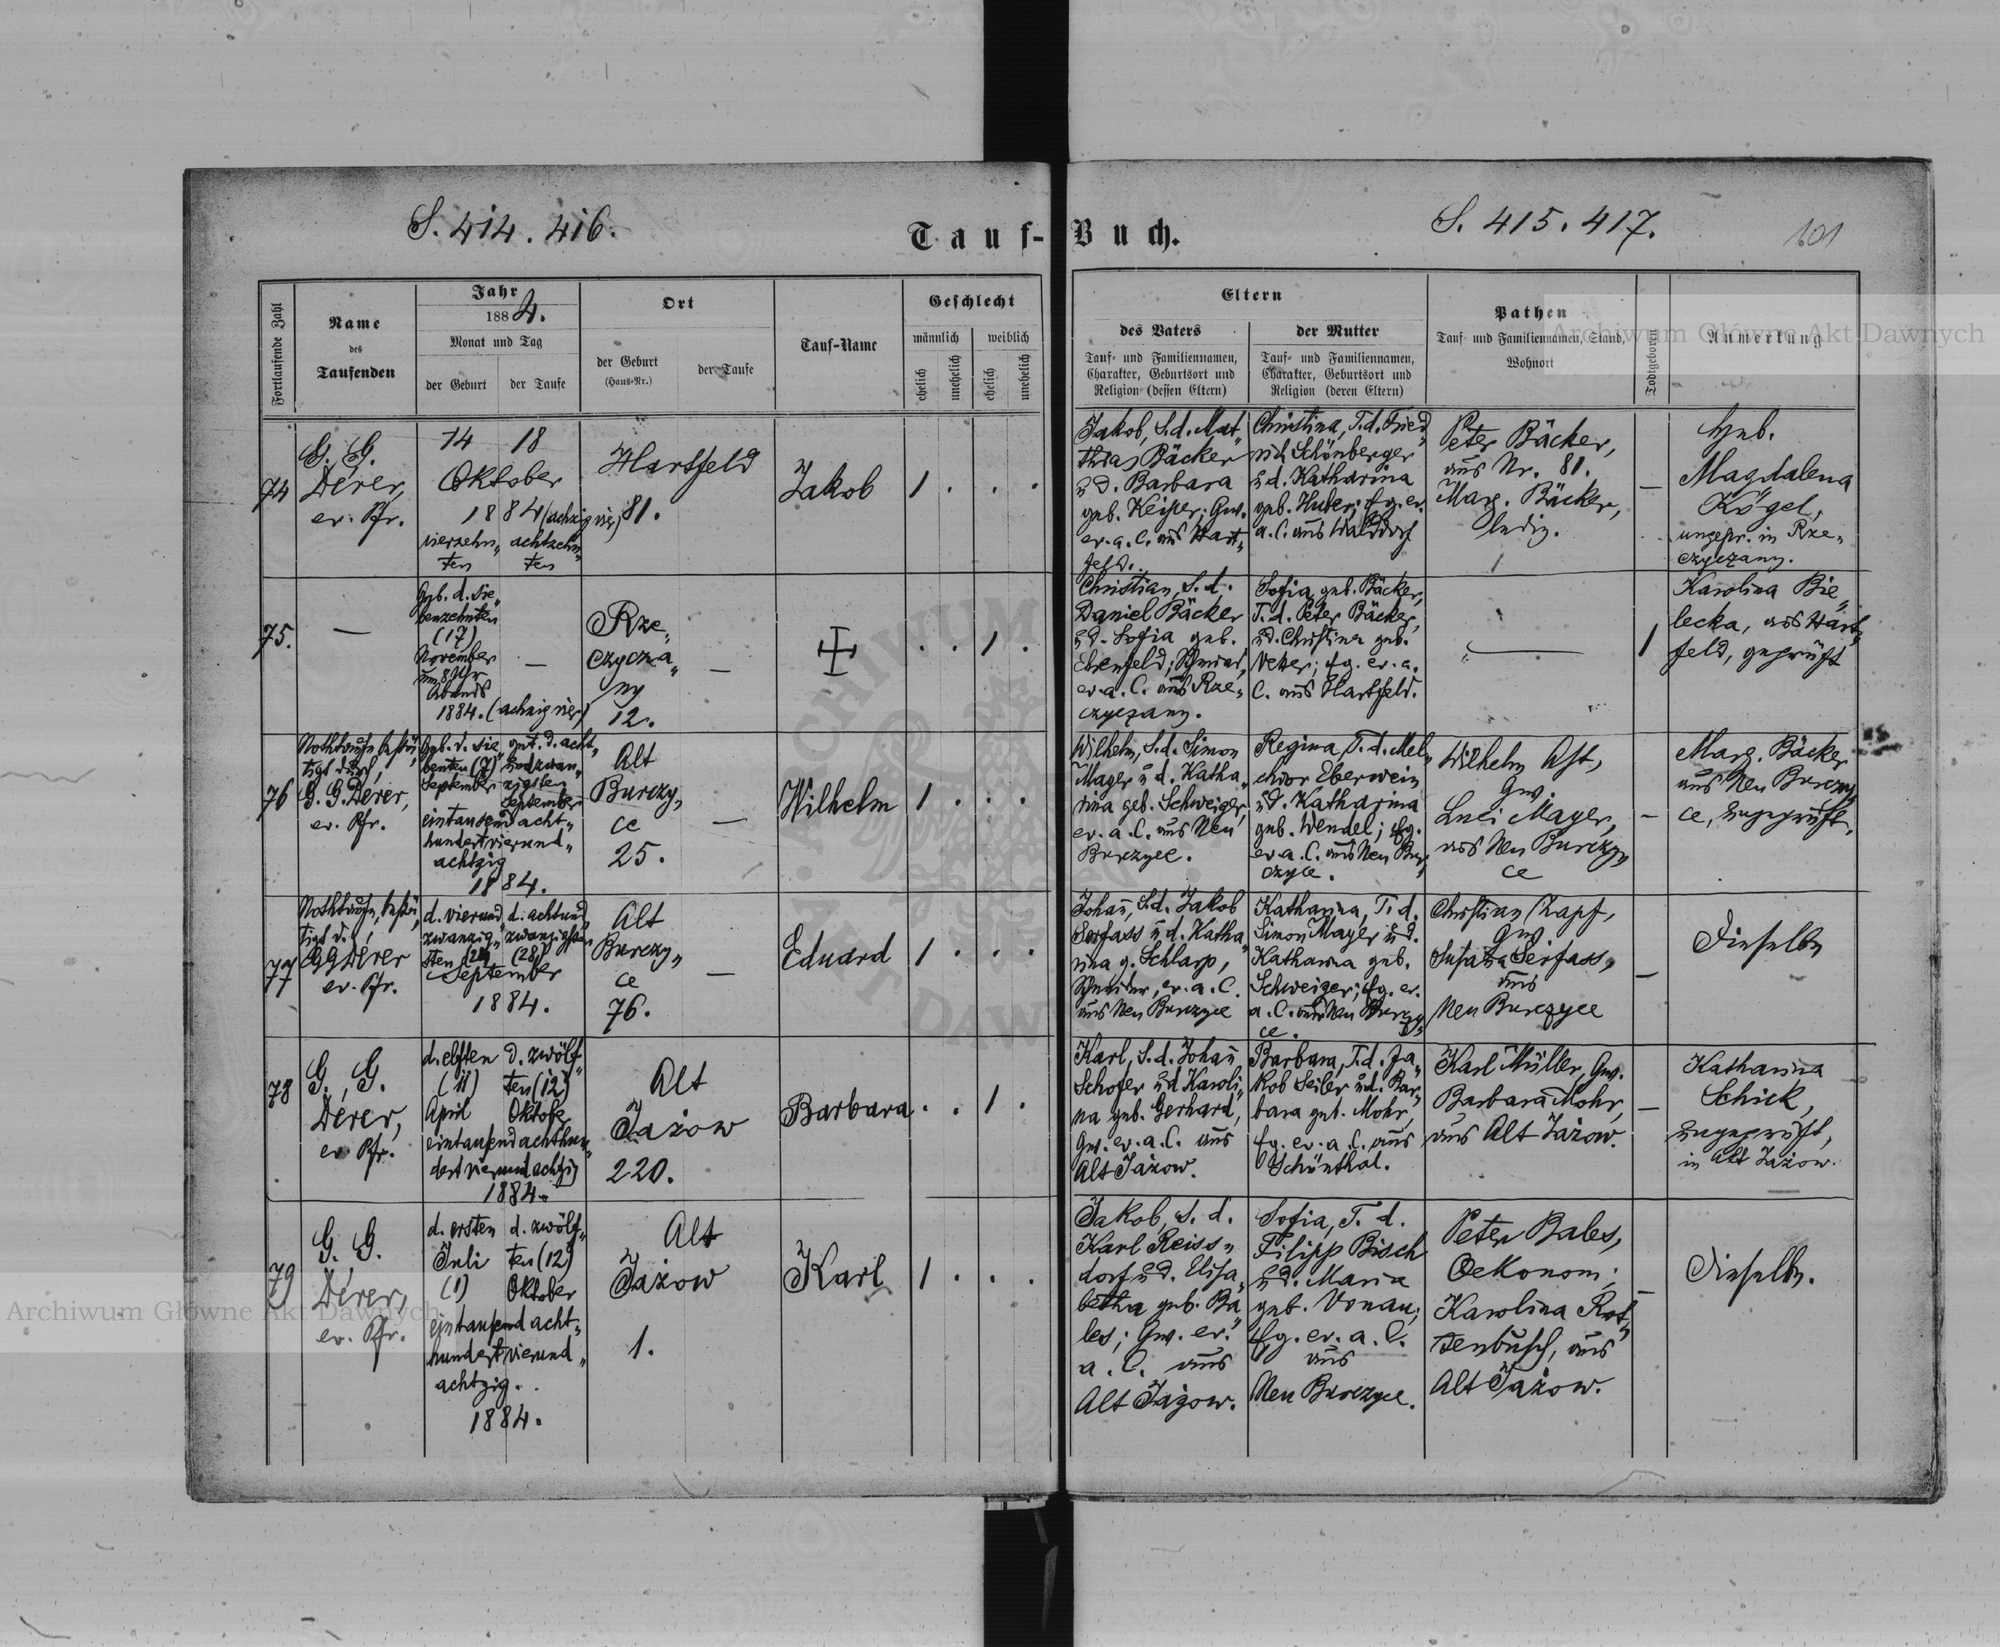 S. 414. 416.
S. 415. 417.
101
Tauf-Buch.
Fortlaufende Zahl
Name
des
Taufenden
Jahr
1884.
Monat und Tag
der Geburt
der Taufe
Ort
der Geburt
(Haus-Nr.)
der Taufe
Tauf-Name
Geschlecht
männlich
weiblich
ehelich
unehelich
ehelich
unehelich
Eltern
des Vaters
Tauf- und Familiennamen,
Charakter, Geburtsort und
Religion (dessen Eltern)
der Mutter
Tauf- und Familiennamen,
Charakter, Geburtsort und
Religion (deren Eltern)
Pathen
Tauf- und Familiennamen, Stand,
Wohnort
Todtgeboren
Anmerkung
74
G. G.
Dérer,
ev. Pfr.
14 18
Oktober
1884 (achzig vier)
vierzehn„ achtzehn„
ten ten
Hartfeld
81.
Jakob
1 . . .
Jakob, S. d. Mat„
thias Bäcker
u d. Barbara
geb. Keiper; Gw.
ev. a. C. aus Hart„
feld.
Christina, T. d. Fried„
rich Schönberger
u d. Katharina
geb. Huber; fg. ev.
a. C. aus Walddorf
Peter Bäcker,
aus Nr. 81.
Marg. Bäcker,
ledig.
—
Heb.
Magdalena
Kögel,
ungepr. in Rze„
czyczany.
75.
—
Geb. d. sie„
benzehnten
(17)
November
um 8 Uhr
Abends
1884. (achzig vier)
—
Rze„
czycza„
ny
12.
—
. . 1 .
Christian, S. d.
Daniel Bäcker
u d. Sofia geb.
Ehrenfeld; Schmied,
ev. a. C. aus Rze„
czyczany.
Sofia geb. Bäcker,
T. d. Peter Bäcker,
u d. Christina geb.
Veter; fg. ev. a.
C. aus Hartfeld.
—
1
Karolina Bie„
lecka, aus Hart„
feld, geprüft
76
Nothtaufe, bestä„
tigt durch,
G. G. Dérer,
ev. Pfr.
Geb. d. sie„ get. d. acht„
benten (7) undzwan„
September zigsten
September
eintausend acht„
hundert vierund„
achtzig
1884.
Alt
Burczy„
ce
25.
—
Wilhelm
1 . . .
Wilhelm, S. d. Simon
Mayer u d. Katha„
rina geb. Schweiger,
ev. a. C. aus Neu
Burczyce.
Regina, T. d. Mel„
chior Eberwein
u d. Katharina
geb. Wendel; fg.
ev. a. C. aus Neu Bur„
czyce.
Wilhelm Ast,
Gw.
Luci Mayer,
aus Neu Burczy„
ce
—
Marg. Bäcker
aus Neu Burczy„
ce, ungeprüft.
77
Nothtaufe, bestä„
tigt d.
G G Dérer
ev. Pfr.
d. vierund„ d. achtund„
zwanzig„ zwanzigsten
sten (24) (28)
September
1884.
Alt
Burczy„
ce
76.
—
Eduard
1 . . .
Johan̄, S. d. Jakob
Serfass u d. Katha„
rina g. Schlarp,
ev. a. C.
aus Neu Burczyce
Katharina, T. d.
Simon Mayer u d.
Katharina geb.
Schweiger; fg. ev.
a. C. aus Neu Burczy„
ce.
Christian Zapf,
Gw.
Susana Serfass,
aus
Neu Burczyce
—
Dieselbe
78
G. G.
Dérer,
ev. Pfr.
d. elften d. zwölf„
(11) ten (12)
April Oktober
eintausend achthun„
dert vierund achtzig
1884.
Alt
Jażow
220.
Barbara
. . 1 .
Karl, S. d. Johan̄
Schofer u d. Karoli„
na geb. Gerhard,
Gw. ev. a. C. aus
Alt Jażow.
Barbara, T. d. Ja„
kob Seiler u d. Bar„
bara geb. Mohr,
fg. ev. a. C. aus
Schönthal.
Karl Müller, Gw.
Barbara Mohr,
aus Alt Jażow.
—
Katharina
Schick,
ungeprüft,
in Alt Jażow.
79
G. G.
Dérer,
ev. Pfr.
d. ersten d. zwölf„
Juli ten (12)
(1) Oktober
eintausend acht„
hundert vierund„
achtzig.
1884.
Alt
Jażow
1.
Karl
1 . . .
Jakob, S. d.
Karl Reiss„
dorf u d. Elisa„
betha geb. Ba„
les; Gw. ev.
a. C. aus
Alt Jażow.
Sofia, T. d.
Filipp Bisch
u d. Maria
geb. Vonau;
fg. ev. a. C.
aus
Neu Burczyce.
Peter Bales,
Oekonom;
Karolina Rot„
tenbusch, aus
Alt Jażow.
—
Dieselbe.
Archiwum Główne Akt Dawnych
Archiwum Główne Akt Dawnych